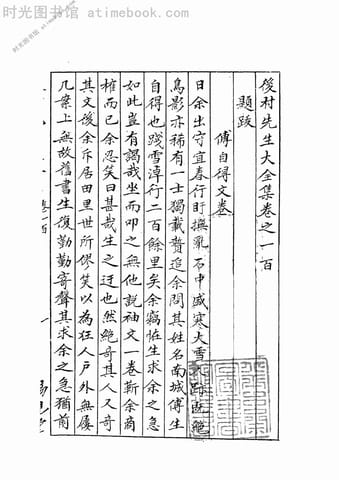 时光图书馆 atimebook.com
後村先生大全集卷之一百
題跋
傅自得文卷
日余出守宜春行盱撫亂石中盛寒大雪人跡既絕
鳥影亦稀有一士獨載贄追余問其姓名南城傅生
自得也踐雪淖行二百餘里矣余竊怪生求余之急
如此豈有謁哉坐而叩之無他說袖文一卷蘄余商
榷而已余忍笑曰甚哉生之迂也然絶奇其人又奇
其文後余斥居田里世所僇笑以為狂人戶外無屨
几案上無故舊書生復勤勤寄聲其求余之急猶前